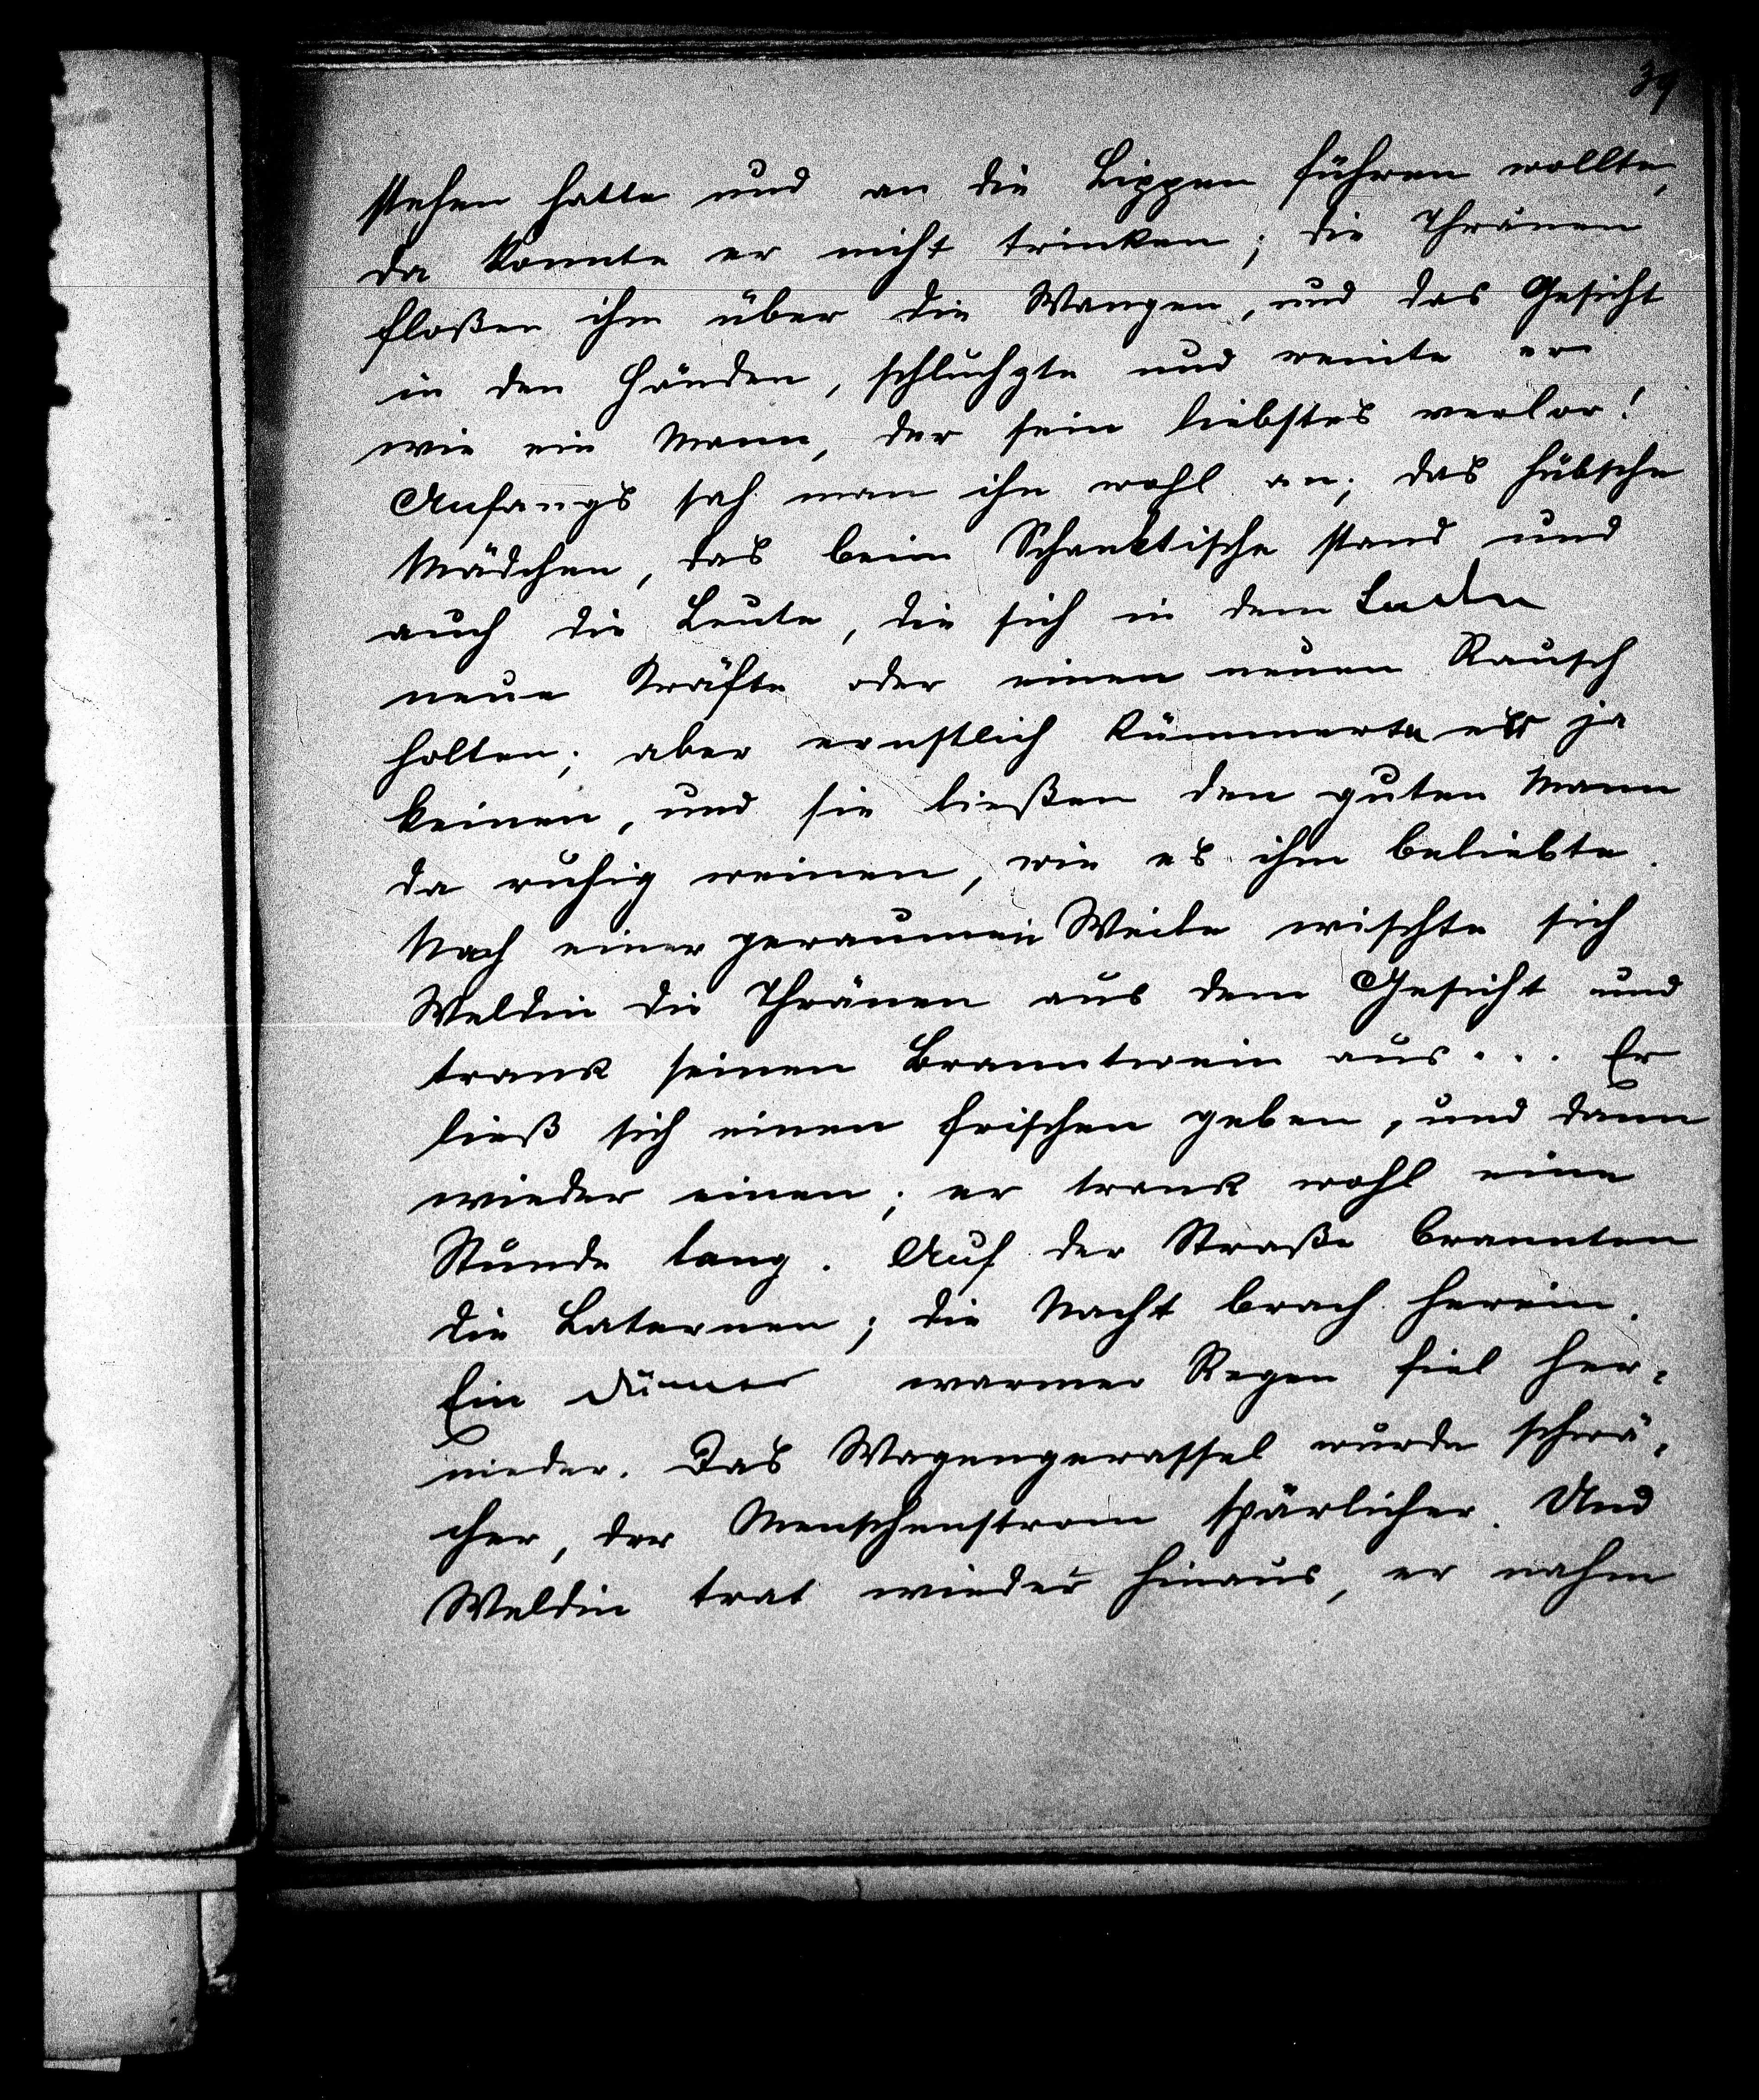 39
stehen hatte und an die Lippen führen wollte,
da konnte er nicht trinken; die Thränen
floßen ihm über die Wangen, und das Gesicht
in den Händen, schluchzte und weinte er
wie ein Mann, der sein liebstes verlor!
Anfangs sah man ihn wohl an; das hübsche
Mädchen, das beim Schanktische stand und
auch die Leute, die sich in dem Laden
neue Kräfte oder einen neuen Rausch
holten; aber ernstlich kümmerte er ja
keinen, und sie ließen den guten Mann
da ruhig weinen, wie es ihm beliebte.
Nach einer geraumen Weile wischte sich
Weldin die Thränen aus dem Gesicht und
trank seinen Branntwein aus... Er
ließ sich einen frischen geben, und dann
wieder einen; er trank wohl eine
Stunde lang. Auf der Straße brannten
die Laternen; die Nacht brach herein.
Ein dünner warmer Regen fiel her-
nieder. Das Wagengerassel wurde schwä-
cher, der Menschenstrom spärlicher. Und
Weldin trat wieder hinaus, er nahm